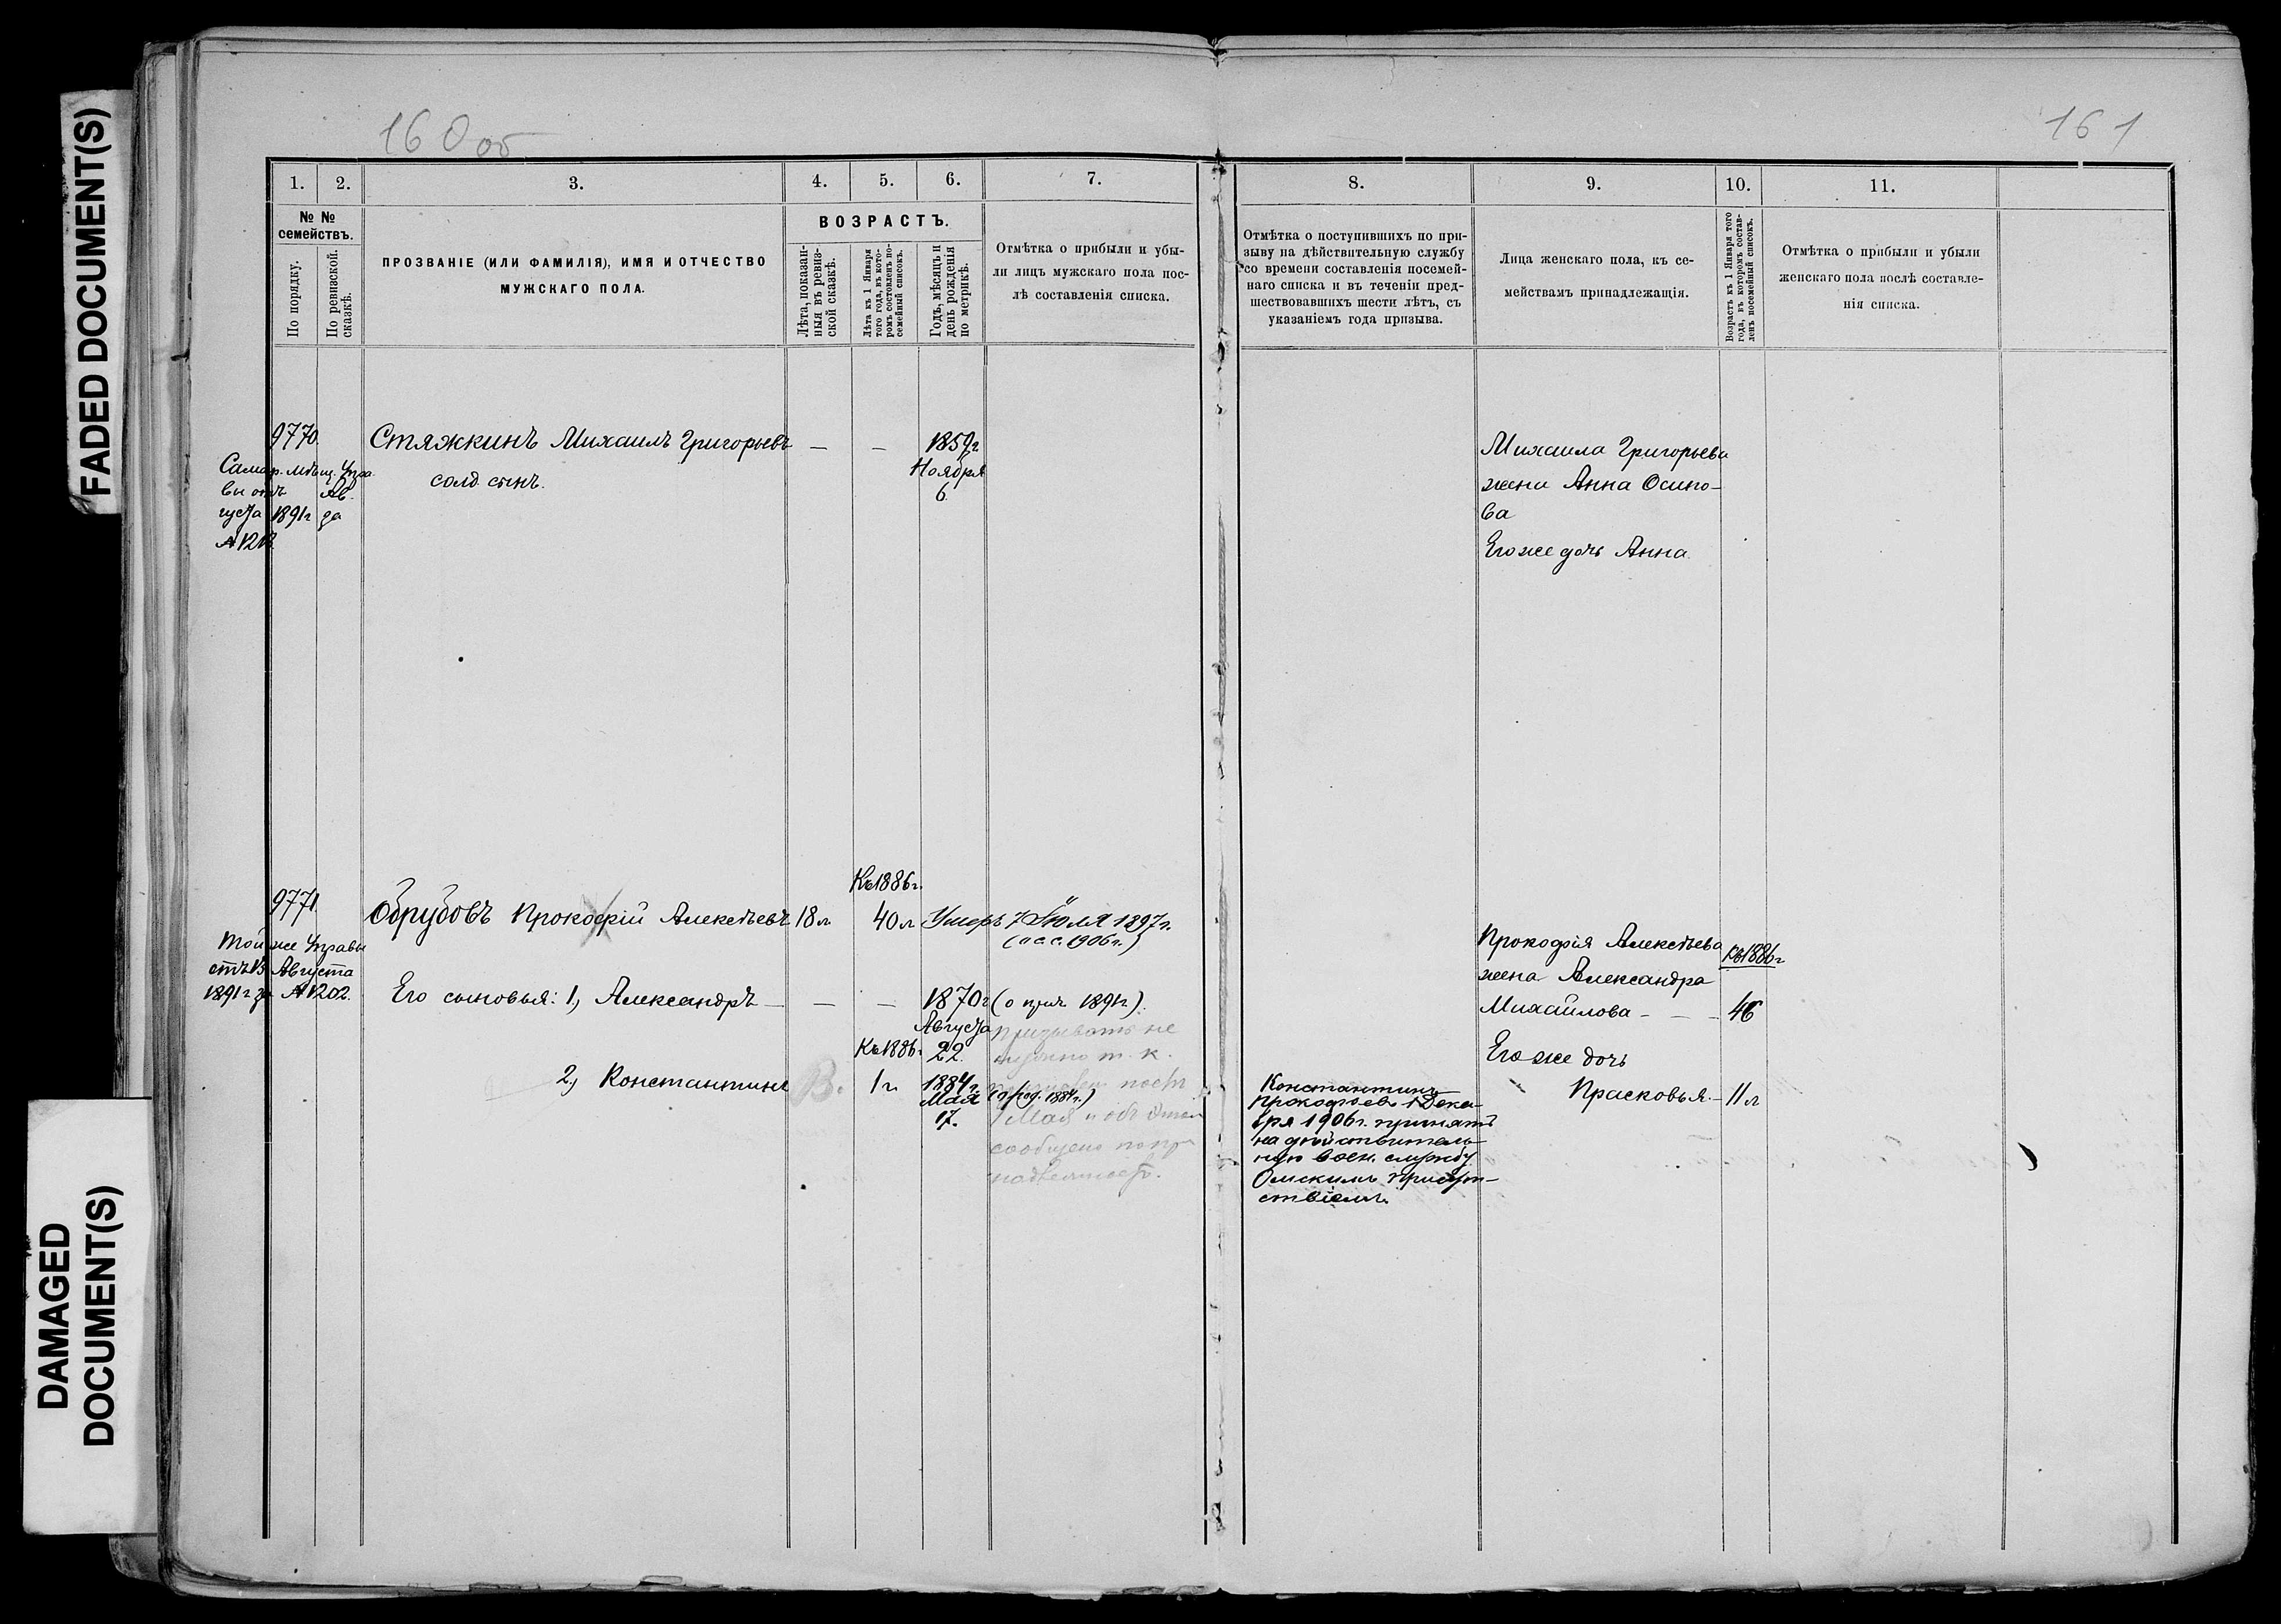 FADED DOCUMENT(S)
DAMAGED
DOCUMENT(S)
160об
161
1.
2.
3.
4.
5.
6.
7.
8.
9.
10.
11.
№ №
семействъ.
По порядку.
По ревизской
сказкѣ.
ПРОЗВАНІЕ (ИЛИ ФАМИЛІЯ), ИМЯ И ОТЧЕСТВО
МУЖСКАГО ПОЛА.
ВОЗРАСТЪ.
Лѣта, показан-
ныя въ ревиз-
ской сказкѣ.
Лѣта къ 1 Января
того года, въ кото-
ромъ составленъ по-
семейный списокъ.
Годъ, мѣсяцъ и
день рожденія
по метрикѣ.
Отмѣтка о прибыли и убы-
ли лицъ мужскаго пола пос-
лѣ составленія списка.
Отмѣтка о поступившихъ по при-
зыву на дѣйствительную службу
со времени составленія посемей-
наго списка и въ теченіи пред-
шествовавшихъ шести лѣтъ, съ
указаніемъ года призыва.
Лица женскаго пола, къ се-
мействамъ принадлежащія.
Возрастъ къ 1 Января того
года, въ которомъ состав-
ленъ посемейный списокъ.
Отмѣтка о прибыли и убыли
женскаго пола послѣ составле-
нія списка.
9770.
Самар. мѣщ. Упра
вы отъ Ав.
густа 1891г за
Стяжкинъ Михаилъ Григорьевъ — —
солд. сынъ.
1859г
Ноября
6.
Михаила Григорьева
жена Анна Осипо-
ва
Его же дочь Анна.
9771.
Той же Управы
отъ 13 Августа
1891г за № 1202.
Обрубовъ Прокофій Алексѣевъ 18л
Къ 1886г.
40л
Умеръ 7 Іюля 1897г.
(п.с.с. 1906г.)
Его сыновья: 1, Александръ — — —
1870г
Августа
22.
(о приз 1891г).
призывать не
нужно т. к.
2, Константинъ
В.
Къ 1886г
1г.
1884г.
Мая
17.
(о род. 1884г.)
Мая и объ этомъ
сообщено
Константинъ
Прокофьевъ 1 Дека-
бря 1906г. принятъ
на дѣйствитель-
ную воен. службу
Омскимъ Присут-
ствіемъ.
Прокофія Алексѣева
жена Александра
Михайлова - - -
Къ 1886г
46
Его же дочь
Прасковья. - 11л